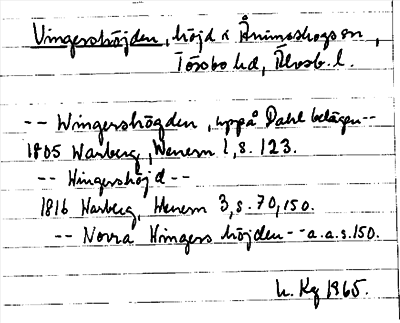 Vingershöjden, höjd i Ånimskogs sn,
Tössbo hd, Älvsb. l.
-- Wingershögden, uppå Dahl belägen --
1805 Warberg, Wenern 1, s. 123.
-- Hingershöjd --
1816 Warberg, Wenern 3, s. 70, 150.
-- Norra Hingers höjden -- a.a.s. 150.
Kg 1865.